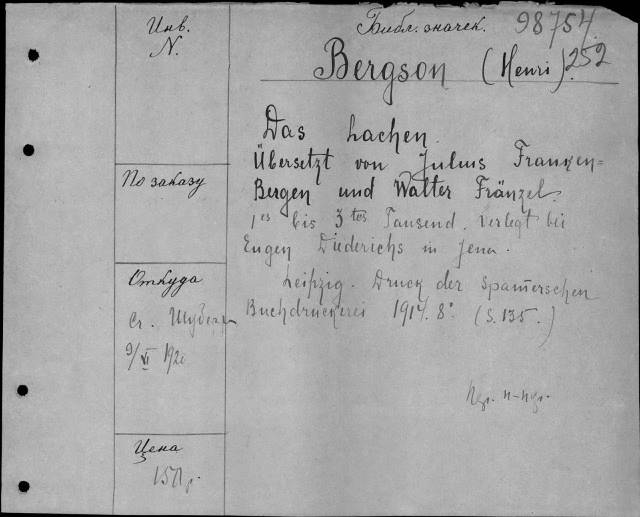 Инв.
N.
Библ. значек. 98754
252
Bergson (Henri).
Das Lachen.
Übersetzt von Julius Franken=
Bergen und Walter Fränzel.
1es bis 3tes Tausend. Verlegt bei
Eugen Diederichs in Jena.
Leipzig. Druck der Spamerschen
Buchdruckerei 1914. 8°. (S. 135.)
По заказу
Откуда
9/VI 1920
Цена